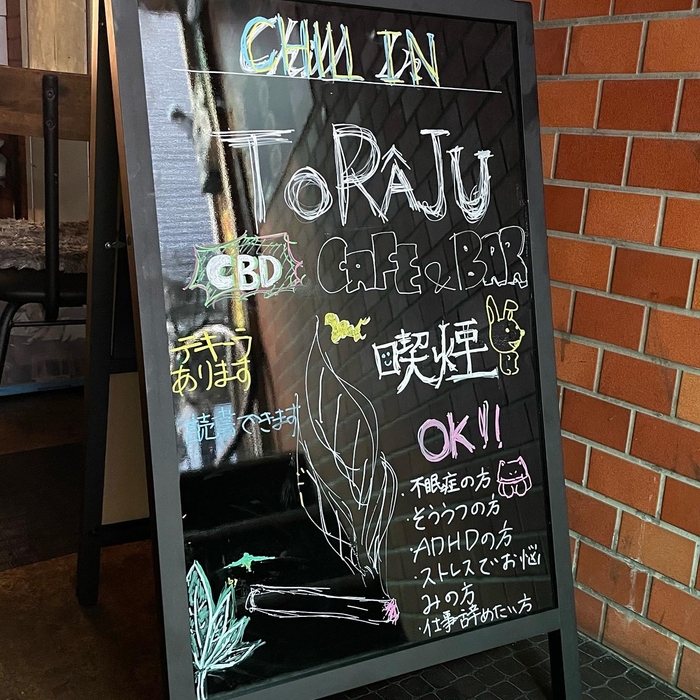 CHILL IN
ToRÂJU
CBD CAFE & BAR
テキーラ
あります
読書できます
喫煙
OK!!
・不眠症の方
・そううつの方
・ADHDの方
・ストレスでお悩
みの方
・仕事辞めたい方